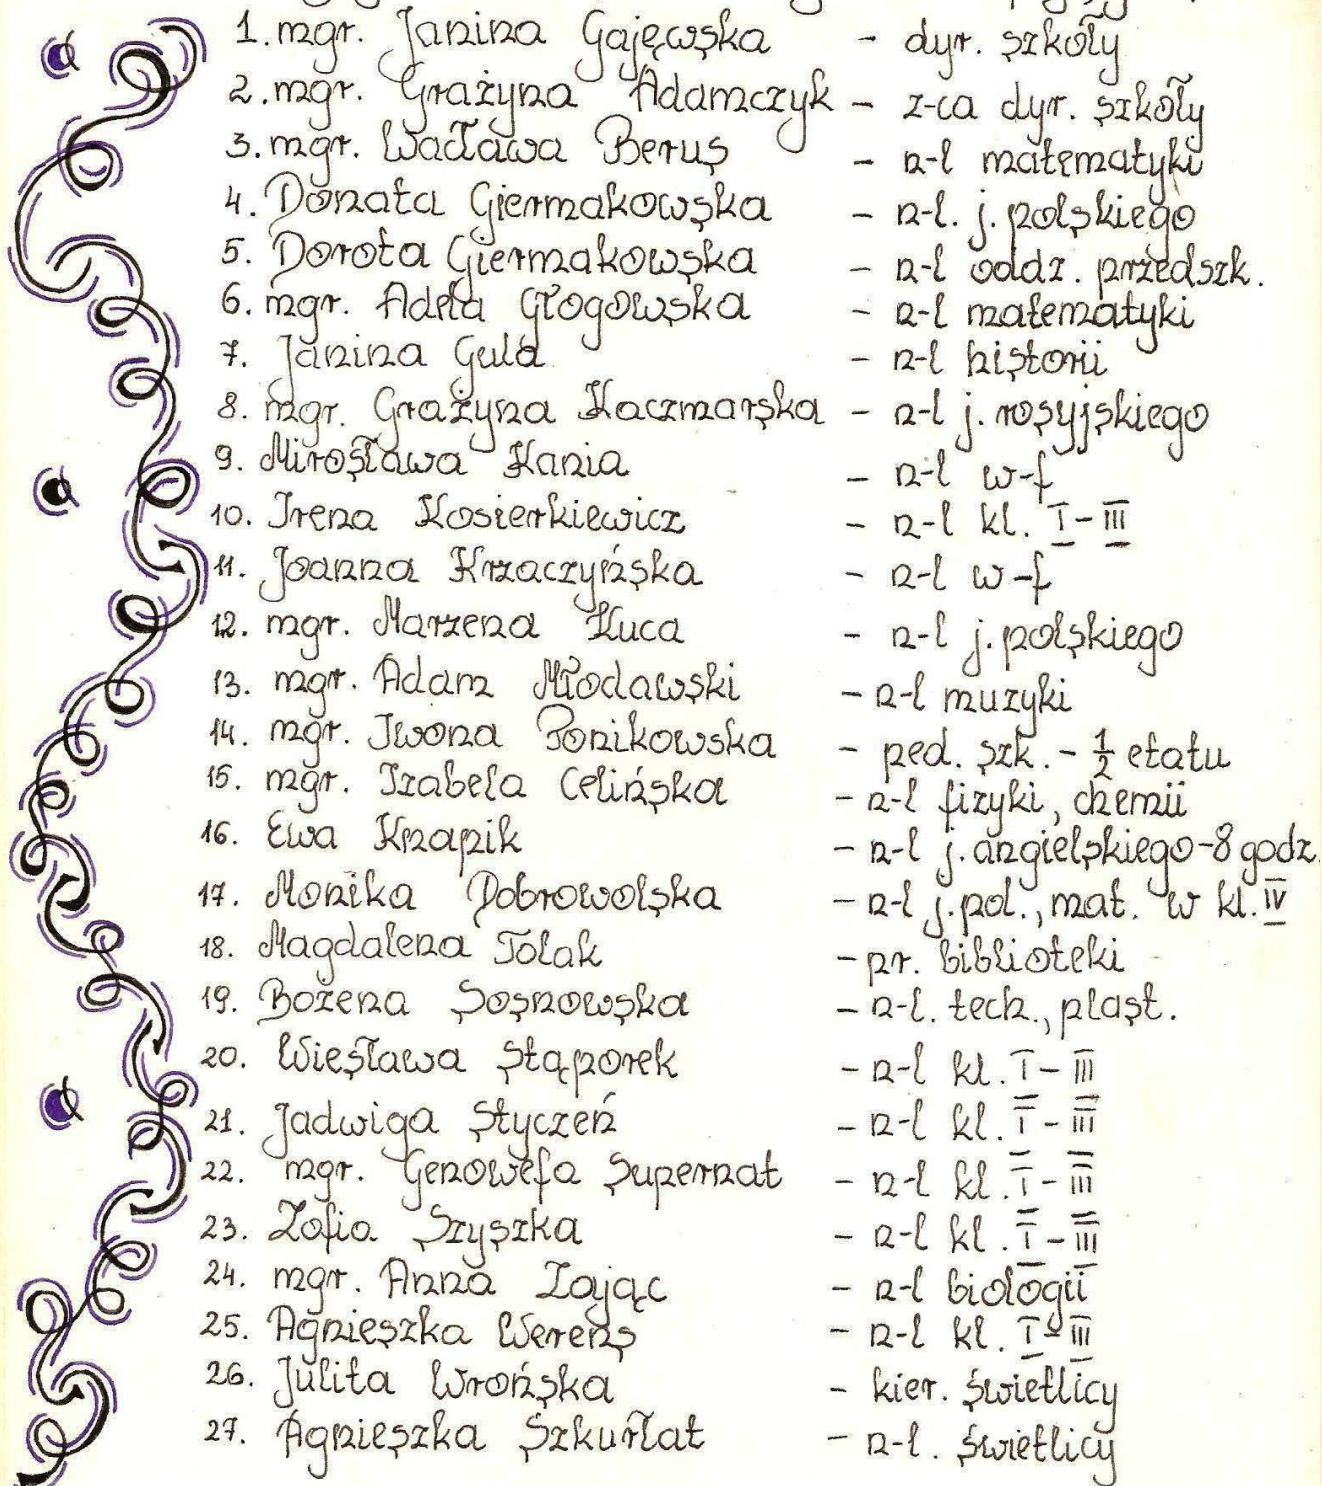 1. mgr. Janina Gajewska - dyr. szkoły
2. mgr. Grażyna Adamczyk - z-ca dyr. szkoły
3. mgr. Wacława Berus - n-l matematyki
4. Donata Giermakowska - n-l. j. polskiego
5. Dorota Giermakowska - n-l oddz. przedszk.
6. mgr. Adela Głogowska - n-l matematyki
7. Janina Gula - n-l historii
8. mgr. Grażyna Kaczmarska - n-l j. rosyjskiego
9. Mirosława Kania - n-l w-f
10. Irena Kosierkiewicz - n-l kl. I-III
11. Joanna Krzaczyńska - n-l w-f
12. mgr. Marzena Kuca - n-l j. polskiego
13. mgr. Adam Młodawski - n-l muzyki
14. mgr. Iwona Ponikowska - ped. szk. - 1/2 etatu
15. mgr. Izabela Celińska - n-l fizyki, chemii
16. Ewa Knapik - n-l j. angielskiego - 8 godz.
17. Monika Dobrowolska - n-l j. pol., mat. w kl. IV
18. Magdalena Tolak - pr. biblioteki
19. Bożena Sosnowska - n-l. tech., plast.
20. Wiesława Stąporek - n-l kl. I-III
21. Jadwiga Styczeń - n-l kl. I-III
22. mgr. Genowefa Supernat - n-l kl. I-III
23. Zofia Szyszka - n-l kl. I-III
24. mgr. Anna Zając - n-l biologii
25. Agnieszka Werens - n-l kl. I-III
26. Julita Wrońska - kier. świetlicy
27. Agnieszka Szkurłat - n-l. świetlicy